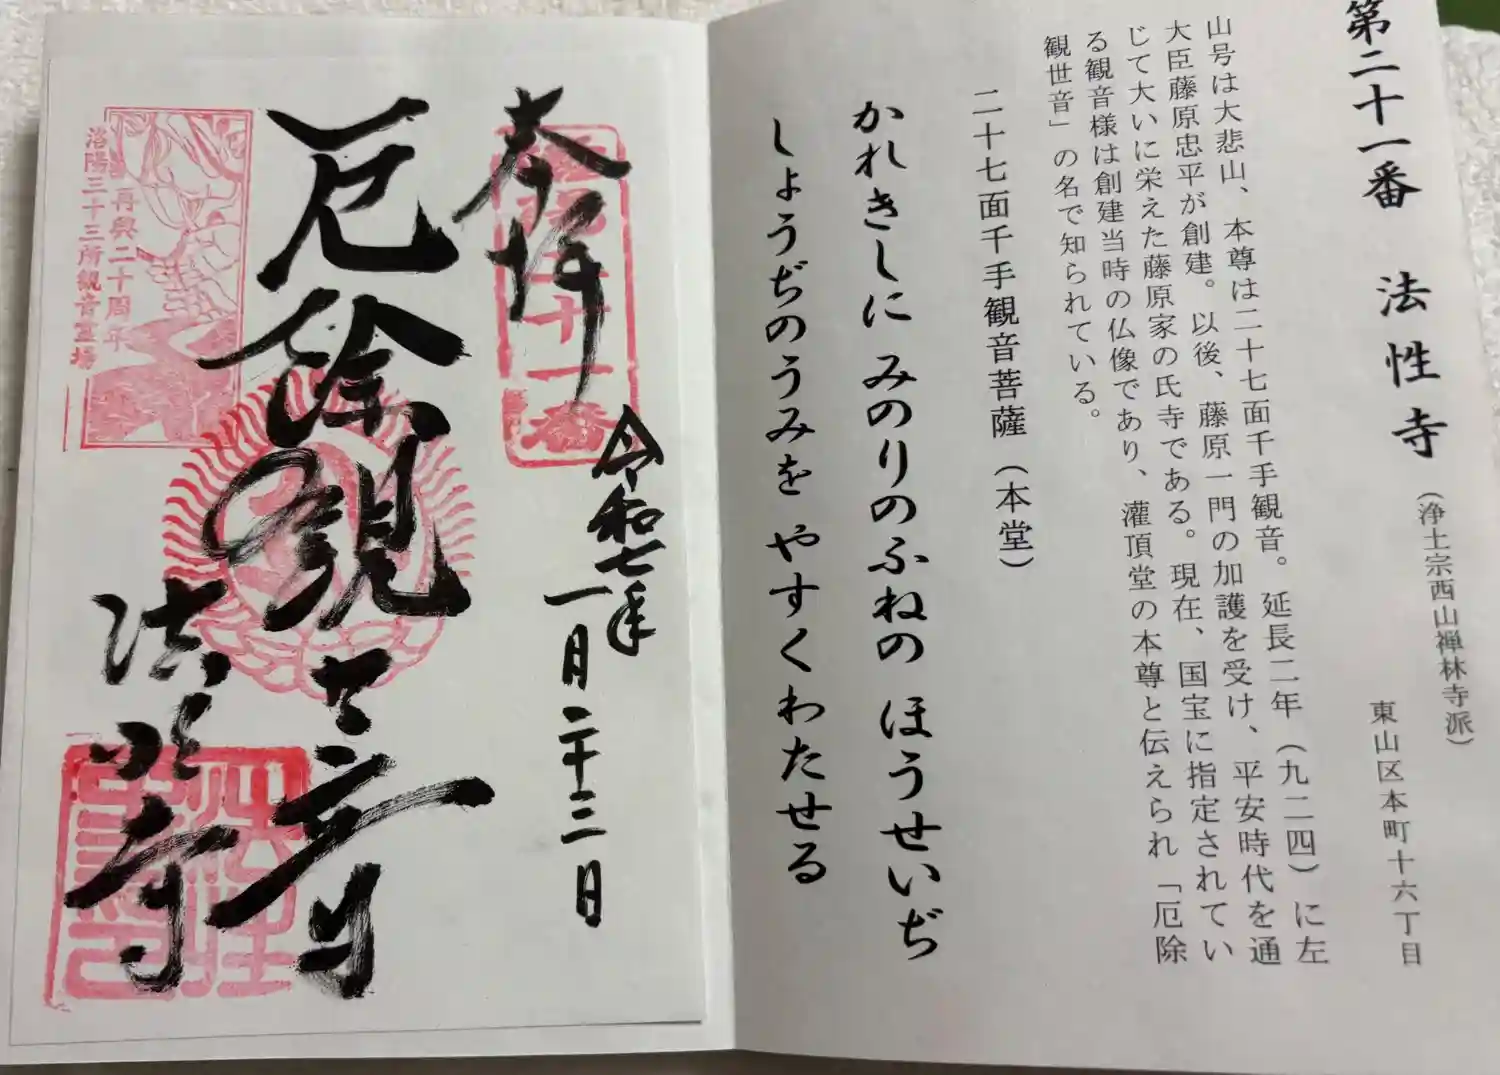 第二十一番 法性寺（浄土宗西山禅林寺派）
東山区本町十六丁目
山号は大悲山、本尊は二十七面千手観音。延長二年（九二四）に左
大臣藤原忠平が創建。以後、藤原一門の加護を受け、平安時代を通
じて大いに栄えた藤原家の氏寺である。現在、国宝に指定されてい
る観音様は創建当時の仏像であり、灌頂堂の本尊と伝えられ「厄除
観世音」の名で知られている。
二十七面千手観音菩薩（本堂）
かれきしに みのりのふねの ほうせいぢ
しょうぢのうみを やすくわたせる
奉拝
令和七年
一月二十三日
厄除観世音
法性寺
再興二十周年
洛陽三十三所観音霊場